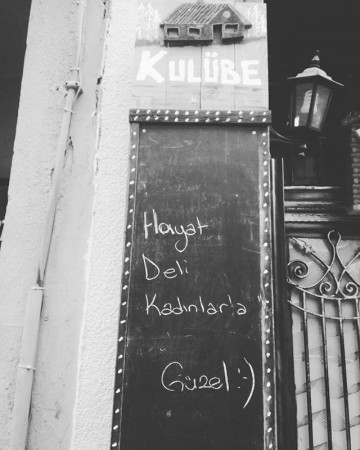 KULÜBE
Hayat
Deli
Kadınlarla
Güzel :-)